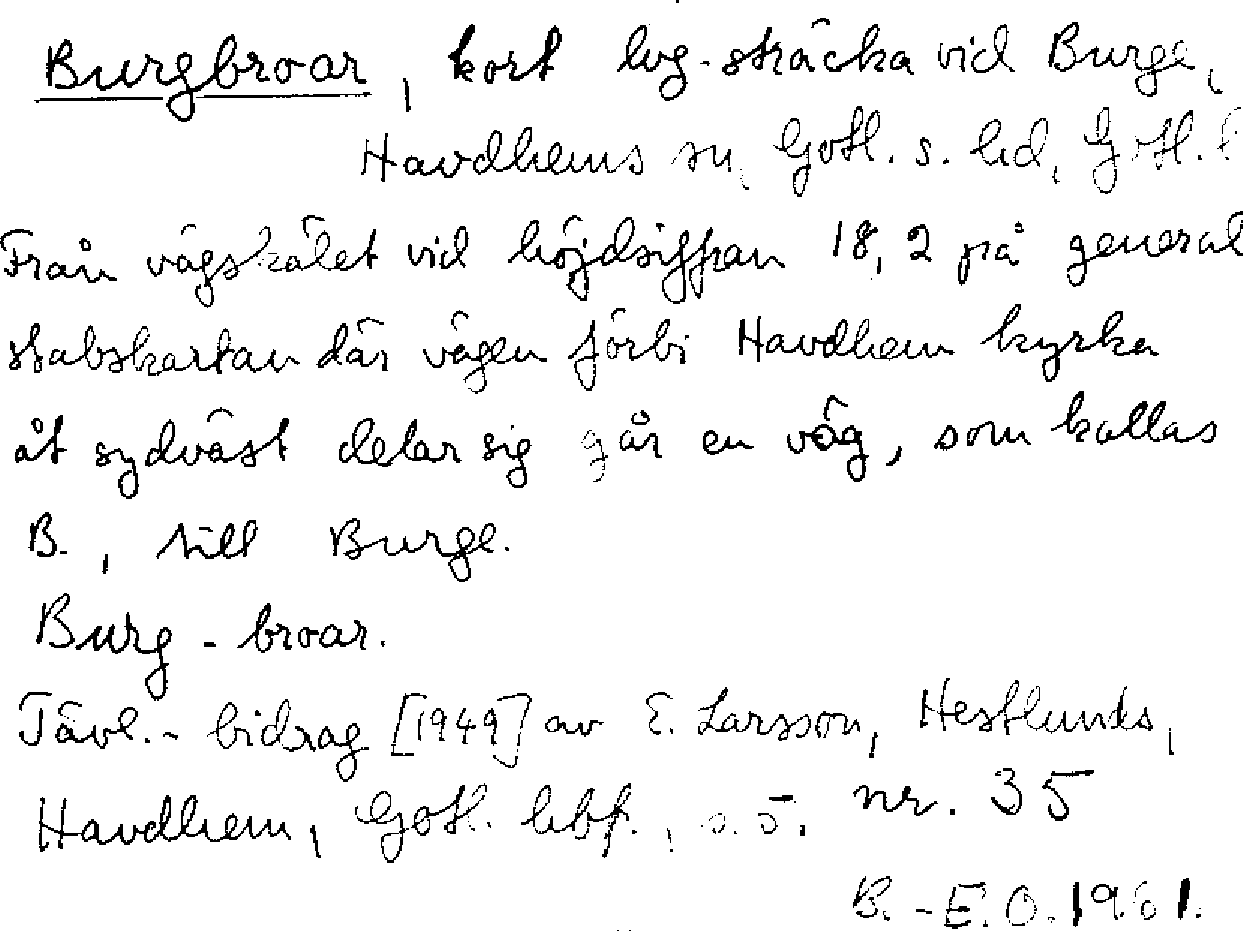 Burgbroar, kort lvg-sträcka vid Burge,
Havdhems sn, Gotl. s. hd, Gotl. l
Från vägskälet vid höjdsiffran 18,2 på general
stabskartan där vägen förbi Havdhem kyrka
åt sydväst delar sig går en väg, som kallas
B., till Burge.
Burg - broar.
Tävl.- bidrag [1949] av E. Larsson, Hestlunds,
Havdhem, Gotl. hbf., s. 5. nr. 35
B.-E.O. 1961.